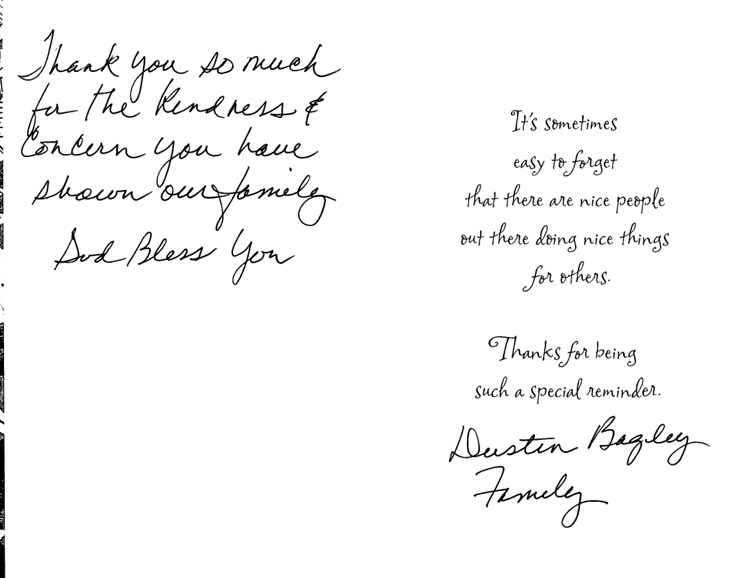 Thank you so much
for the kindness &
Concern you have
shown our family
God Bless You
It's sometimes
easy to forget
that there are nice people
out there doing nice things
for others.
Thanks for being
such a special reminder.
Dustin Bagley
Family